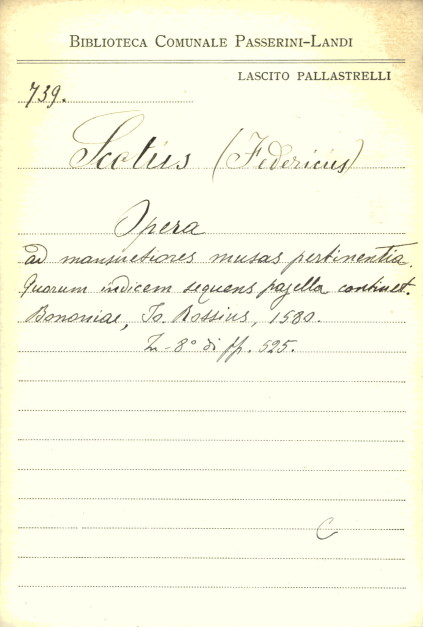 BIBLIOTECA COMUNALE PASSERINI-LANDI
LASCITO PALLASTRELLI
739.
Scotus (Federicus)
Opera
ad mansuetiores musas pertinentia.
Quorum indicem sequens pagella continet.
Bononiae, Io. Rossius, 1580.
8° di pp. 525.
C